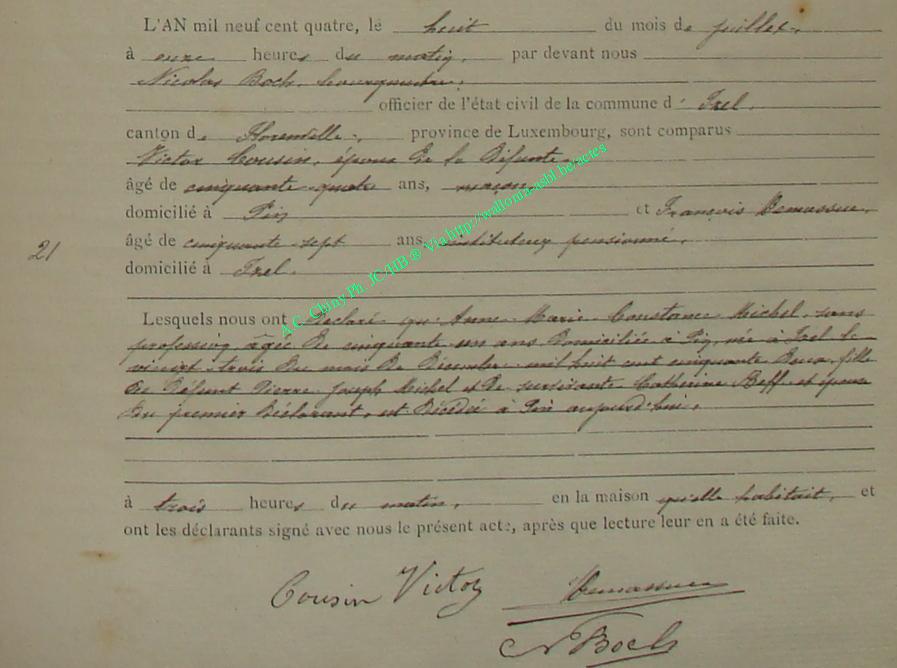 L'AN mil neuf cent quatre, le huit du mois de juillet.
à onze heures du matin, par devant nous
Nicolas Boch, bourgmestre,
officier de l'état civil de la commune d' Izel.
canton de Florenville, province de Luxembourg, sont comparus
Victor Cousin, époux de la Défunte,
âgé de cinquante quatre ans, maçon,
domicilié à Pin et François Demasseux,
21
âgé de cinquante-sept ans, instituteur pensionné,
domicilié à Izel.
Lesquels nous ont Déclaré que Anne Marie Constance Michel, sans
profession, âgée de cinquante un ans Domiciliée à Pin, née à Izel le
vingt-trois du mois de Décembre mil huit cent cinquante Deux, fille
du Défunt Pierre Joseph Michel et De survivante Catherine et épouse
du premier Déclarant, est Décédée à Pin aujourd'hui,
à trois heures du matin, en la maison qu'elle habitait, et
ont les déclarants signé avec nous le présent acte, après que lecture leur en a été faite.
Cousin Victor
N Boch
A.C. Chiny Ph. JC/HB ® Via http://wallonia-asbl.be/actes